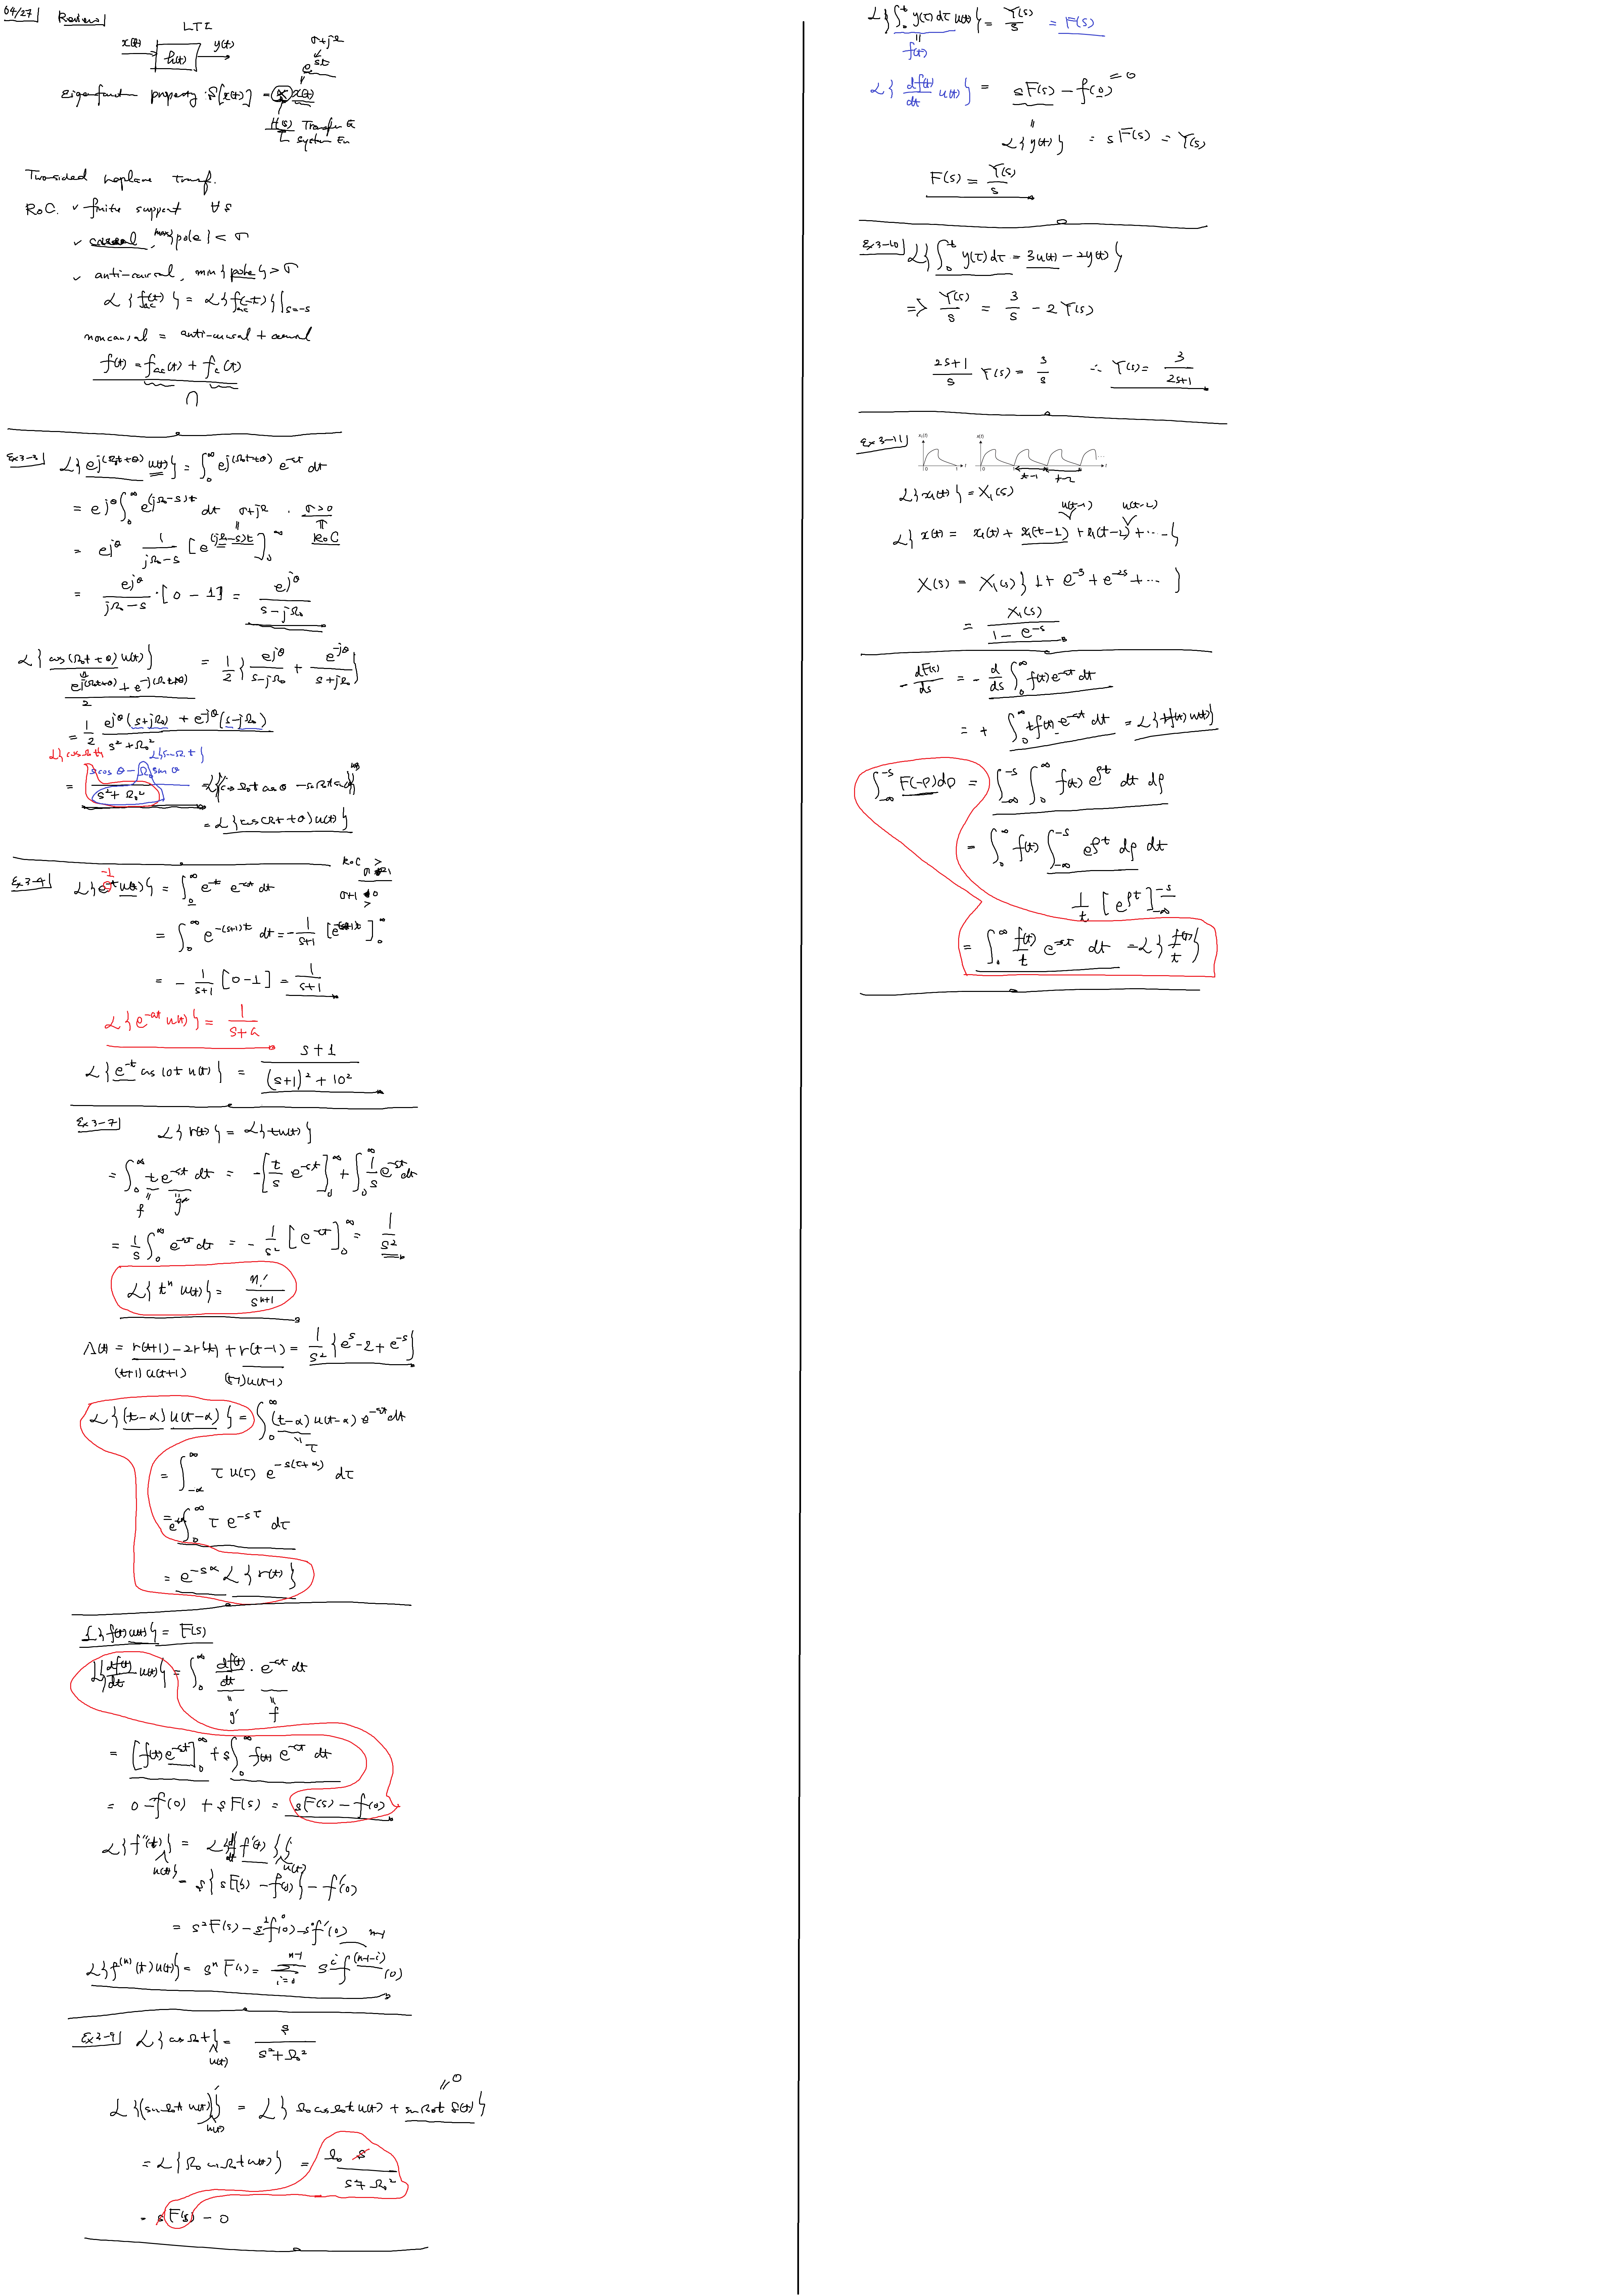 04/27 Review
LTI
x(t) h(t) y(t)
σ+jΩ
e^{st}
eigenfunction property : S[x(t)] = x(t)
H(s) Transfer
System
Two-sided Laplace transf.
RoC. ✓ finite support ∀s
✓ causal, max{pole} < σ
✓ anti-causal, min{pole} > σ
ℒ{f_{ac}(t)} = ℒ{f_{ac}(-t)}|_{s=-s}
noncausal = anti-causal + causal
f(t) = f_{ac}(t) + f_c(t)
∩
Ex3-3 ℒ{e^{j(Ω₀t+θ)} u(t)} = ∫_0^∞ e^{j(Ω₀t+θ)} e^{-st} dt
= e^{jθ} ∫_0^∞ e^{(jΩ₀-s)t} dt σ+jΩ . σ>0
RoC
= e^{jθ} 1/(jΩ₀-s) [e^{(jΩ₀-s)t}]_0^∞
= e^{jθ}/(jΩ₀-s) · [0-1] = e^{jθ}/(s-jΩ₀)
ℒ{cos(Ω₀t+θ) u(t)} = 1/2 {e^{jθ}/(s-jΩ₀) + e^{-jθ}/(s+jΩ₀)}
(e^{j(Ω₀t+θ)} + e^{-j(Ω₀t+θ)})/2
= 1/2 (e^{jθ}(s+jΩ₀) + e^{-jθ}(s-jΩ₀))/(s²+Ω₀²)
ℒ{cosΩ₀t} ℒ{sinΩ₀t}
= (s cosθ - Ω₀ sinθ)/(s²+Ω₀²) ℒ{(cosΩ₀t cosθ - sinΩ₀t sinθ) u(t)}
= ℒ{cos(Ω₀t+θ)u(t)}
Ex3-4 ℒ{e^{-t} u(t)} = ∫_0^∞ e^{-t} e^{-st} dt
RoC >
σ -1
σ+1 > 0
= ∫_0^∞ e^{-(s+1)t} dt = -1/(s+1) [e^{-(s+1)t}]_0^∞
= -1/(s+1) [0-1] = 1/(s+1)
ℒ{e^{-at} u(t)} = 1/(s+a)
ℒ{e^{-t} cos10t u(t)} = (s+1)/((s+1)²+10²)
Ex3-7 ℒ{r(t)} = ℒ{tu(t)}
= ∫_0^∞ t e^{-st} dt = -[t/s e^{-st}]_0^∞ + ∫_0^∞ 1/s e^{-st} dt
f g'
= 1/s ∫_0^∞ e^{-st} dt = -1/s² [e^{-st}]_0^∞ = 1/s²
ℒ{t^n u(t)} = n!/s^{n+1}
Λ(t) = r(t+1) - 2r(t) + r(t-1) = 1/s² {e^s - 2 + e^{-s}}
(t+1)u(t+1) (t-1)u(t-1)
ℒ{(t-α) u(t-α)} = ∫_0^∞ (t-α) u(t-α) e^{-st} dt
τ
= ∫_{-α}^∞ τ u(τ) e^{-s(τ+α)} dτ
= e^{-sα} ∫_0^∞ τ e^{-sτ} dτ
= e^{-sα} ℒ{r(t)}
ℒ{f(t)u(t)} = F(s)
ℒ{df(t)/dt u(t)} = ∫_0^∞ df(t)/dt · e^{-st} dt
g' f
= [f(t)e^{-st}]_0^∞ + s∫_0^∞ f(t) e^{-st} dt
= 0 - f(0) + sF(s) = sF(s) - f(0)
ℒ{f''(t)} = ℒ{d/dt f'(t)}
u(t) u(t)
= s{sF(s) - f(0)} - f'(0)
= s²F(s) - s¹f⁰(0) - s⁰f'(0) n-1
ℒ{f^{(n)}(t)u(t)} = s^n F(s) = Σ_{i=0}^{n-1} s^i f^{(n-1-i)}(0)
Ex3-9 ℒ{cosΩ₀t} = s/(s²+Ω₀²)
u(t)
= 0
ℒ{(sinΩ₀t u(t))'} = ℒ{Ω₀cosΩ₀t u(t) + sinΩ₀t δ(t)}
u(t)
= ℒ{Ω₀ cosΩ₀t u(t)} = Ω₀ s/(s²+Ω₀²)
= sF(s) - 0
ℒ{∫_0^t y(τ)dτ u(t)} = Y(s)/s = F(s)
f(t)
ℒ{df(t)/dt u(t)} = sF(s) - f(0) = 0
ℒ{y(t)} = sF(s) = Y(s)
F(s) = Y(s)/s
Ex3-10 ℒ{∫_0^t y(τ)dτ = 3u(t) - 2y(t)}
=> Y(s)/s = 3/s - 2Y(s)
(2s+1)/s Y(s) = 3/s ∴ Y(s) = 3/(2s+1)
Ex3-11
t-1 t-2
ℒ{x₁(t)} = X₁(s)
u(t-1) u(t-2)
ℒ{x(t) = x₁(t) + x₁(t-1) + x₁(t-2) + ⋯}
X(s) = X₁(s){1 + e^{-s} + e^{-2s} + ⋯}
= X₁(s)/(1 - e^{-s})
-dF(s)/ds = -d/ds ∫_0^∞ f(t)e^{-st} dt
= + ∫_0^∞ tf(t) e^{-st} dt = ℒ{tf(t)u(t)}
∫_{-∞}^{-s} F(-ρ)dρ = ∫_{-∞}^{-s} ∫_0^∞ f(t) e^{ρt} dt dρ
= ∫_0^∞ f(t) ∫_{-∞}^{-s} e^{ρt} dρ dt
1/t [e^{ρt}]_{-∞}^{-s}
= ∫_0^∞ f(t)/t e^{-st} dt = ℒ{f(t)/t}